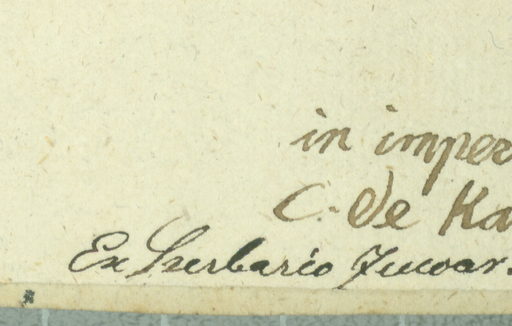 in imper
C. de Ka
Ex Herbario